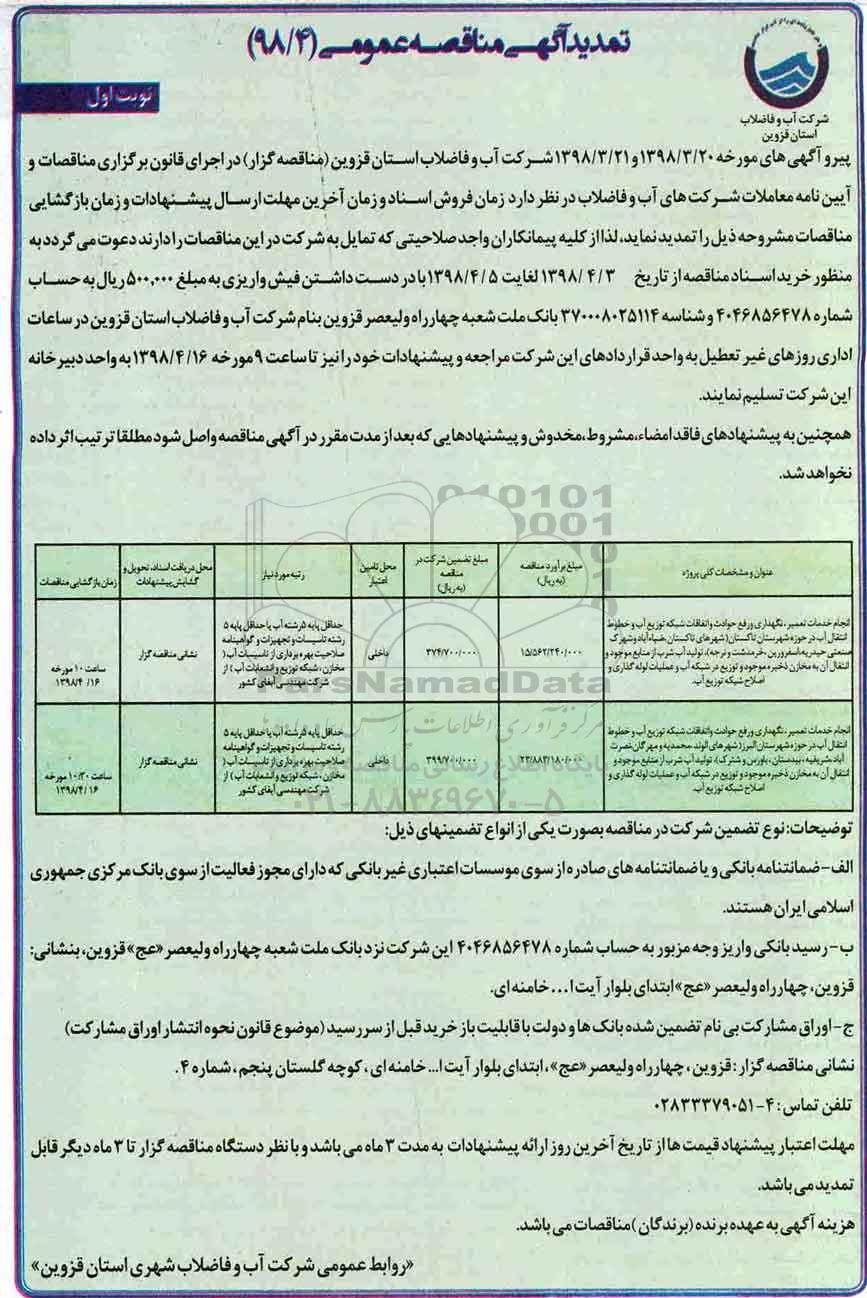 تمدید آگهی مناقصه عمومی (۹۸/۴)
شرکت آب و فاضلاب
استان قزوین
نوبت اول
پیرو آگهی های مورخه ۱۳۹۸/۳/۲۰ و ۱۳۹۸/۳/۲۱ شرکت آب و فاضلاب استان قزوین (مناقصه گزار) در اجرای قانون برگزاری مناقصات و
آیین نامه معاملات شرکت های آب و فاضلاب در نظر دارد زمان فروش اسناد و زمان آخرین مهلت ارسال پیشنهادات و زمان بازگشایی
مناقصات مشروحه ذیل را تمدید نماید، لذا از کلیه پیمانکاران واجد صلاحیتی که تمایل به شرکت در این مناقصات را دارند دعوت می گردد به
منظور خرید اسناد مناقصه از تاریخ ۱۳۹۸/۴/۳ لغایت ۱۳۹۸/۴/۵ با در دست داشتن فیش واریزی به مبلغ ۵۰۰,۰۰۰ ریال به حساب
شماره ۴۰۴۶۸۵۶۴۷۸ و شناسه ۳۷۰۰۰۸۰۲۵۱۱۴ بانک ملت شعبه چهارراه ولیعصر قزوین بنام شرکت آب و فاضلاب استان قزوین در ساعات
اداری روزهای غیر تعطیل به واحد قراردادهای این شرکت مراجعه و پیشنهادات خود را نیز تا ساعت ۹ مورخه ۱۳۹۸/۴/۱۶ به واحد دبیرخانه
این شرکت تسلیم نمایند.
همچنین به پیشنهادهای فاقد امضاء، مشروط، مخدوش و پیشنهادهایی که بعد از مدت مقرر در آگهی مناقصه واصل شود مطلقا ترتیب اثر داده
نخواهد شد.
عنوان و مشخصات کلی پروژه
مبلغ برآورد مناقصه
(به ریال)
مبلغ تضمین شرکت در
مناقصه
(به ریال)
محل تامین
اعتبار
رتبه مورد نیاز
محل دریافت اسناد، تحویل و
گشایش پیشنهادات
زمان بازگشایی مناقصات
انجام خدمات تعمیر، نگهداری و رفع حوادث و اتفاقات شبکه توزیع آب و خطوط
انتقال آب در حوزه شهرستان تاکستان (شهرهای تاکستان، ضیاء آباد و شهرک
صنعتی حیدریه، اسفرورین، خرمدشت و نرجه)، تولید آب شرب از منابع موجود و
انتقال آن به مخازن ذخیره موجود و توزیع در شبکه آب و عملیات لوله گذاری و
اصلاح شبکه توزیع آب.
۱۵/۵۶۲/۲۴۰/۰۰۰
۳۷۴/۷۰۰/۰۰۰
داخلی
حداقل پایه ۵ رشته آب یا حداقل پایه ۵
رشته تاسیسات و تجهیزات و گواهینامه
صلاحیت بهره برداری از تاسیسات آب (
مخازن، شبکه توزیع و انشعابات آب) از
شرکت مهندسی آبفای کشور
نشانی مناقصه گزار
ساعت ۱۰ مورخه
۱۳۹۸/۴/۱۶
انجام خدمات تعمیر، نگهداری و رفع حوادث و اتفاقات شبکه توزیع آب و خطوط
انتقال آب در حوزه شهرستان البرز (شهرهای الوند، محمدیه و مهرگان، نصرت
آباد، شریفیه، بیدستان، باورس و شترک)، تولید آب شرب از منابع موجود و
انتقال آن به مخازن ذخیره موجود و توزیع در شبکه آب و عملیات لوله گذاری و
اصلاح شبکه توزیع آب.
۲۳/۸۸۳/۱۸۰/۰۰۰
۳۹۹/۷۰۰/۰۰۰
داخلی
حداقل پایه ۵ رشته آب یا حداقل پایه ۵
رشته تاسیسات و تجهیزات و گواهینامه
صلاحیت بهره برداری از تاسیسات آب (
مخازن، شبکه توزیع و انشعابات آب) از
شرکت مهندسی آبفای کشور
نشانی مناقصه گزار
ساعت ۱۰:۳۰ مورخه
۱۳۹۸/۴/۱۶
ParsNamadData
مرکز فرآوری اطلاعات پارس نماد داده ها
پایگاه اطلاع رسانی مناقصات
۰۲۱-۸۸۳۴۹۶۷۰-۵
توضیحات: نوع تضمین شرکت در مناقصه بصورت یکی از انواع تضمینهای ذیل:
الف- ضمانتنامه بانکی و یا ضمانتنامه های صادره از سوی موسسات اعتباری غیر بانکی که دارای مجوز فعالیت از سوی بانک مرکزی جمهوری
اسلامی ایران هستند.
ب- رسید بانکی واریز وجه مزبور به حساب شماره ۴۰۴۶۸۵۶۴۷۸ این شرکت نزد بانک ملت شعبه چهارراه ولیعصر «عج» قزوین، بنشانی:
قزوین، چهارراه ولیعصر «عج» ابتدای بلوار آیت ا... خامنه ای.
ج- اوراق مشارکت بی نام تضمین شده بانک ها و دولت با قابلیت باز خرید قبل از سررسید (موضوع قانون نحوه انتشار اوراق مشارکت)
نشانی مناقصه گزار: قزوین، چهارراه ولیعصر «عج»، ابتدای بلوار آیت ا... خامنه ای، کوچه گلستان پنجم، شماره ۴.
تلفن تماس: ۴-۰۲۸۳۳۳۷۹۰۵۱
مهلت اعتبار پیشنهاد قیمت ها از تاریخ آخرین روز ارائه پیشنهادات به مدت ۳ ماه می باشد و با نظر دستگاه مناقصه گزار تا ۳ ماه دیگر قابل
تمدید می باشد.
هزینه آگهی به عهده برنده (برندگان) مناقصات می باشد.
«روابط عمومی شرکت آب و فاضلاب شهری استان قزوین»